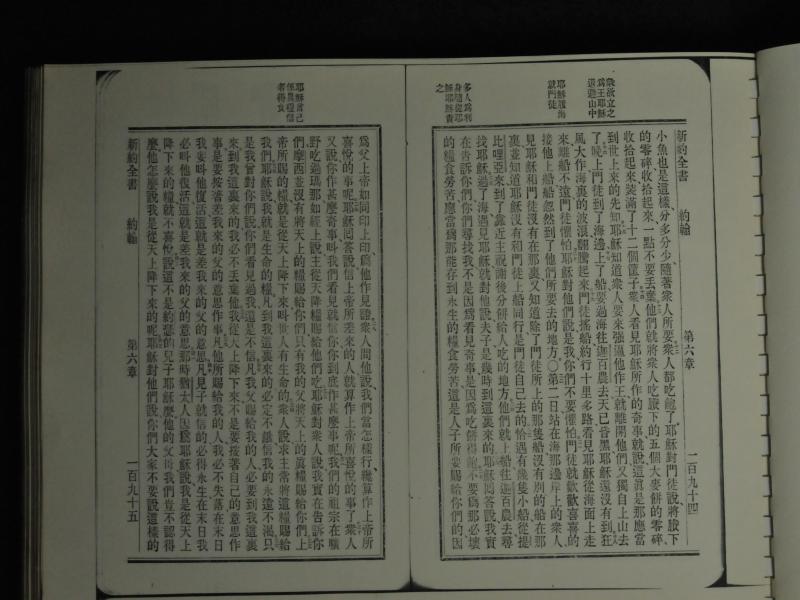 新約全書 約翰 第六章 一百九十四
衆欲立之
爲王耶穌
退避山中
耶穌履海
就門徒
多人爲利
身隨從耶
穌耶穌責
之
小魚也是這樣分多分少隨著衆人所要衆人都吃飽了耶穌對門徒說將賸下
的零碎收拾起來一點不要丢棄他們就將衆人吃賸下的五個大麥餅的零碎
收拾起來裝滿了十二個筐子衆人看見耶穌所作的奇事就說這眞是那應當
到世上來的先知耶穌知道衆人要來强逼他作王就離開他們又獨自上山去
了晚上門徒到了海邊上了船要過海往迦百農去天已昏黑耶穌還沒有到狂
風大作海裏的波浪翻騰起來門徒搖船約行十里多路看見耶穌從海面上走
來離船不遠門徒懼怕耶穌對他們說是我你們不要懼怕門徒就歡歡喜喜的
接他上船船忽然到了他們所要去的地方○第二日站在海那邊岸上的衆人
見耶穌和門徒沒有在那裏又知道除了門徒所上的那隻船沒有別的船在那
裏並知道耶穌沒有和門徒上船同行是門徒自己去的恰遇有幾隻小船從提
比哩亞來到了靠近主祝謝後分餅給人吃的地方他們就上船往迦百農去尋
找耶穌過了海遇見耶穌就對他說夫子是幾時到這裏來的耶穌囘答說我實
在告訴你們你們尋找我不是因爲看見奇事是因爲吃餅得飽不要爲那必壞
的糧食勞苦應當爲那能存到永生的糧食勞苦這是人子所要賜給你們的因
耶穌言己
係眞糧信
者得食
爲父上帝如同印上印爲他作見證衆人問他說我們當怎樣行纔算作上帝所
喜悅的事呢耶穌囘答說信上帝所差來的人就算作上帝所喜悅的事了衆人
又說你作甚麼奇事叫我們看見就信你你到底作甚麼事呢我們的祖宗在曠
野吃過瑪那如經上說主從天降糧賜給他們吃耶穌對衆人說我實在告訴你
們摩西並沒有將天上的糧賜給你們只有我的父將天上的眞糧賜給你們上
帝所賜的糧就是從天上降下來叫世人有生命的衆人說求主常將這糧賜給
我們耶穌說我就是生命的糧凡到我這裏來的必定不饑信我的永遠不渴只
是我曾對你們說你們看見過我還是不信凡我父賜給我的人必要到我這裏
來到我這裏來的我必不丢棄他我從天上降下來不是要按著自己的意思作
事是要按著差我來的父的意思作事凡他所賜給我的人我必不失落在末日
我要叫他復活這就是差我來的父的意思凡見子就信的必得永生在末日我
必叫他復活這就是差我來的父的意思那時猶太人因爲耶穌說我是從天上
降下來的糧就不喜悅說這不是約瑟的兒子耶穌麼他的父母我們豈不認得
麼他怎麼說我是從天上降下來的呢耶穌對他們說你們大家不要說這樣的
新約全書 約翰 第六章 一百九十五